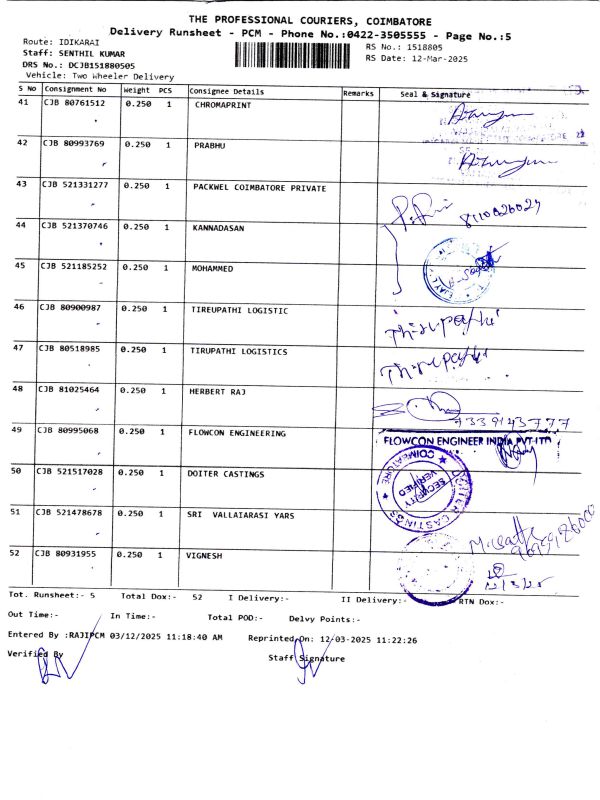 THE PROFESSIONAL COURIERS, COIMBATORE
Delivery Runsheet - PCM - Phone No.:0422-3505555 - Page No.:5
Route: IDIKARAI
RS No.: 1518805
Staff: SENTHIL KUMAR
RS Date: 12-Mar-2025
DRS No.: DCJB151880505
Vehicle: Two Wheeler Delivery
S No Consignment No Weight PCS Consignee Details Remarks Seal & Signature
41 CJB 80761512 0.250 1 CHROMAPRINT
42 CJB 80993769 0.250 1 PRABHU
43 CJB 521331277 0.250 1 PACKWEL COIMBATORE PRIVATE
44 CJB 521370746 0.250 1 KANNADASAN
45 CJB 521185252 0.250 1 MOHAMMED
46 CJB 80900987 0.250 1 TIREUPATHI LOGISTIC Thirupathi
47 CJB 80518985 0.250 1 TIRUPATHI LOGISTICS Thirupathi
48 CJB 81025464 0.250 1 HERBERT RAJ
7339143777
49 CJB 80995068 0.250 1 FLOWCON ENGINEERING FLOWCON ENGINEER INDIA PVT LTD
50 CJB 521517028 0.250 1 DOITER CASTINGS DOITER CASTINGS COIMBATORE SECURITY VERIFIED
51 CJB 521478678 0.250 1 SRI VALLAIARASI YARS
52 CJB 80931955 0.250 1 VIGNESH
12/3/25
Tot. Runsheet:- 5 Total Dox:- 52 I Delivery:- II Delivery:- RTN Dox:-
Out Time:- In Time:- Total POD:- Delvy Points:-
Entered By :RAJIPCM 03/12/2025 11:18:40 AM Reprinted On: 12-03-2025 11:22:26
Verified By Staff Signature